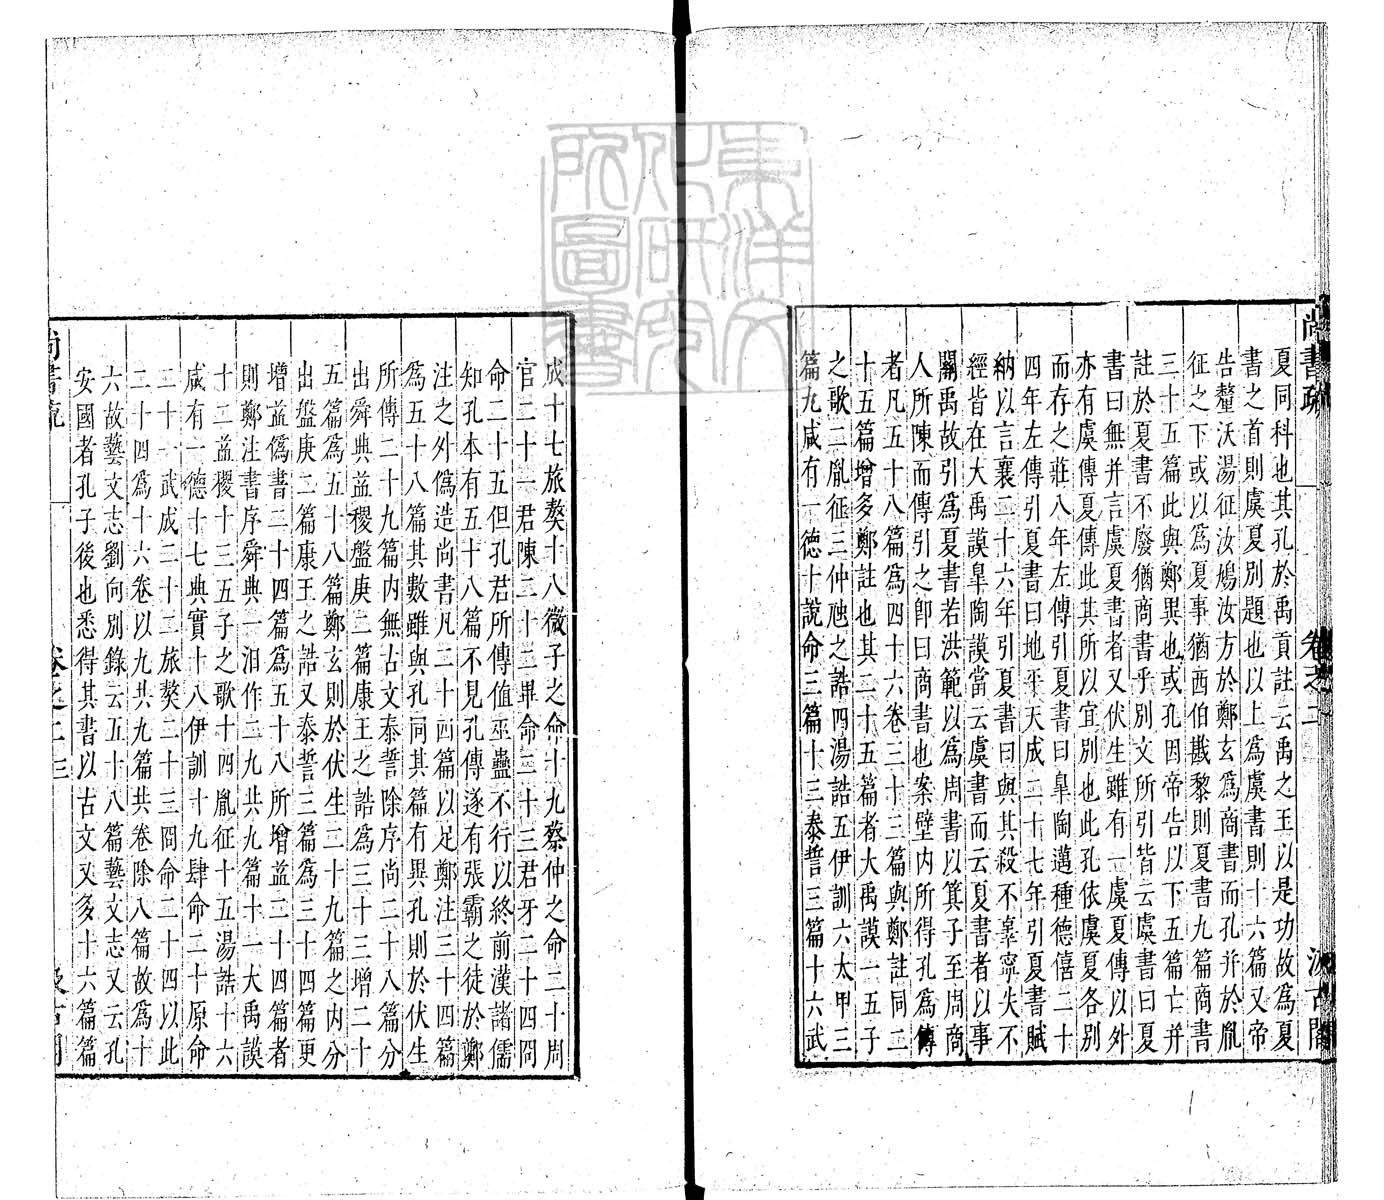 尚書疏 卷之二 汲古閣
夏同科也其孔於禹貢註云禹之王以是功故爲夏
書之首則虞夏別題也以上爲虞書則十六篇又帝
告釐沃湯征汝鳩汝方於鄭玄爲商書而孔并於胤
征之下或以爲夏事猶西伯戡黎則夏書九篇商書
三十五篇此與鄭異也或孔因帝告以下五篇亡并
註於夏書不廢猶商書乎別文所引皆云虞書曰夏
書曰無并言虞夏書者又伏生雖有一虞夏傳以外
亦有虞傳夏傳此其所以宜別也此孔依虞夏各別
而存之莊八年左傳引夏書曰皐陶邁種德僖二十
四年左傳引夏書曰地平天成二十七年引夏書賦
納以言襄二十六年引夏書曰與其殺不辜寧失不
經皆在大禹謨皐陶謨當云虞書而云夏書者以事
關禹故引爲夏書若洪範以爲周書以箕子至周商
人所陳而傳引之卽曰商書也案壁內所得孔爲傳
者凡五十八篇爲四十六卷三十三篇與鄭註同二
十五篇增多鄭註也其二十五篇者大禹謨一五子
之歌二胤征三仲虺之誥四湯誥五伊訓六太甲三
篇九咸有一德十說命三篇十三泰誓三篇十六武
成十七旅獒十八微子之命十九蔡仲之命二十周
官二十一君陳二十二畢命二十三君牙二十四冏
命二十五但孔君所傳值巫蠱不行以終前漢諸儒
知孔本有五十八篇不見孔傳遂有張霸之徒於鄭
注之外僞造尚書凡二十四篇以足鄭注三十四篇
爲五十八篇其數雖與孔同其篇有異孔則於伏生
所傳二十九篇內無古文泰誓除序尚二十八篇分
出舜典益稷盤庚二篇康王之誥爲三十三增二十
五篇爲五十八篇鄭玄則於伏生二十九篇之內分
出盤庚二篇康王之誥又泰誓三篇爲三十四篇更
增益僞書二十四篇爲五十八所增益二十四篇者
則鄭注書序舜典一汨作二九共九篇十一大禹謨
十二益稷十三五子之歌十四胤征十五湯誥十六
咸有一德十七典實十八伊訓十九肆命二十原命
二十一武成二十二旅獒二十三冏命二十四以此
二十四爲十六卷以九共九篇共卷除八篇故爲十
六故藝文志劉向別錄云五十八篇藝文志又云孔
安國者孔子後也悉得其書以古文又多十六篇篇
尚書疏 卷之二 三 汲古閣
東洋文化研究所圖書